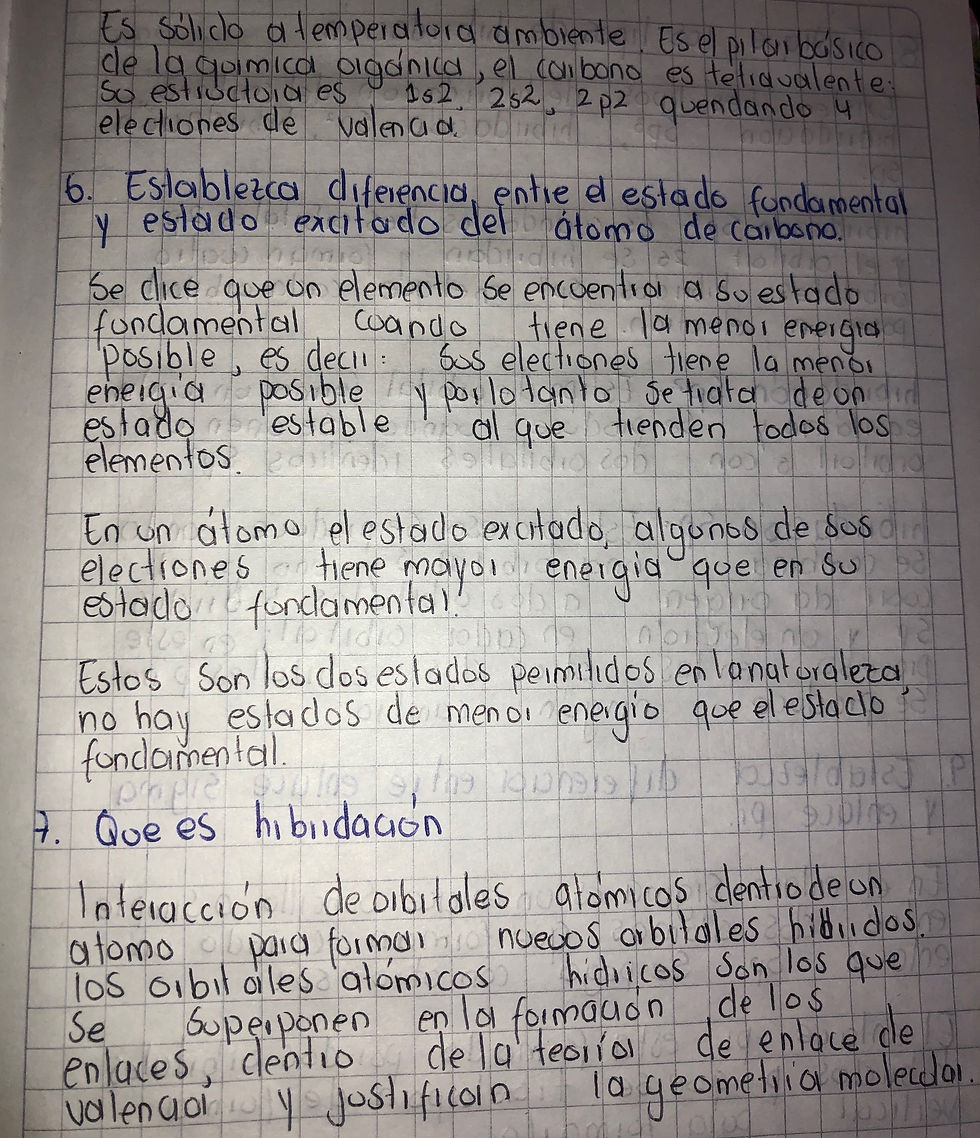 Es sólido a temperatura ambiente. Es el pilar básico
de la quimica orgánica, el carbono es tetravalente.
Su estructura es 1s2, 2s2, 2p2 quendando 4
electrones de valencia.
6. Establezca diferencia, entre el estado fundamental
y estado excitado del átomo de carbono.
Se dice que un elemento se encuentra a su estado
fundamental cuando tiene la menor energia
posible, es decir: Sus electrones tiene la menor
energía posible y por lo tanto se trata de un
estado estable al que tienden todos los
elementos.
En un átomo el estado excitado, algunos de sus
electrones tiene mayor energia que en su
estado fundamental.
Estos son los dos estados permitidos en la naturaleza,
no hay estados de menor energio que el estado
fundamental.
7. Que es hibridación
Interacción de orbitales atómicos dentro de un
atomo para formar nuevos orbitales hibridos.
los orbitales atómicos hidricos son los que
se superponen en la formación de los
enlaces, dentro de la teoría de enlace de
valencia y justifican la geometria molecular.